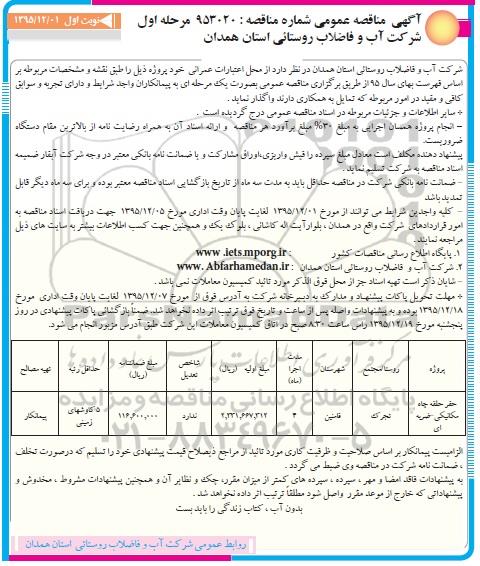 آگهی مناقصه عمومی شماره مناقصه : ۹۵۳۰۲۰ مرحله اول
شرکت آب و فاضلاب روستائی استان همدان
نوبت اول ۱۳۹۵/۱۲/۰۱
شرکت آب و فاضلاب روستائی استان همدان در نظر دارد از محل اعتبارات عمرانی خود پروژه ذیل را طبق نقشه و مشخصات مربوطه بر
اساس فهرست بهای سال ۹۵ از طریق برگزاری مناقصه عمومی بصورت یک مرحله ای به پیمانکاران واجد شرایط و دارای تجربه و سوابق
کافی و مفید در امور مربوطه که تمایل به همکاری دارند واگذار نماید .
÷ سایر اطلاعات و جزئیات مربوطه در اسناد مناقصه عمومی درج گردیده است .
– انجام پروژه همسان اجرایی به مبلغ ۳۰% مبلغ برآورد هر مناقصه و ارائه اسناد آن به همراه رضایت نامه از بالاترین مقام دستگاه
ضروریست.
پیشنهاد دهنده مکلف است معادل مبلغ سپرده را فیش واریزی،اوراق مشارکت و یا ضمانت نامه بانکی معتبر در وجه شرکت آبفار ضمیمه
اسناد مناقصه به شرکت تسلیم نماید .
– ضمانت نامه بانکی شرکت در مناقصه حداقل باید به مدت سه ماه از تاریخ بازگشایی اسناد مناقصه معتبر بوده و برای سه ماه دیگر قابل
تمدید باشد
– کلیه واجدین شرایط می توانند از مورخ ۱۳۹۵/۱۲/۰۱ لغایت پایان وقت اداری مورخ ۱۳۹۵/۱۲/۰۵ جهت دریافت اسناد مناقصه به
امور قراردادهای شرکت واقع در همدان ، بلوارآیت اله کاشانی ، بلوک یک و همچنین جهت کسب اطلاعات بیشتر به سایت های ذیل
مراجعه نمایند .
۱. پایگاه اطلاع رسانی مناقصات کشور : www.iets.mporg.ir
۲. شرکت آب و فاضلاب روستائی استان همدان : www.Abfarhamedan.ir
– شایان ذکر است تهیه اسناد جز از محل فوق الذکر مورد تائید کمیسیون معاملات نمی باشد .
÷ مهلت تحویل پاکات پیشنهاد و مدارک به دبیرخانه شرکت به آدرس فوق از مورخ ۱۳۹۵/۱۲/۰۷ لغایت پایان وقت اداری مورخ
۱۳۹۵/۱۲/۱۸ بوده و به پیشنهادات واصله پس از ساعت و تاریخ فوق ترتیب اثر داده نخواهد شد. ضمناً بازگشائی پاکات پیشنهادی در روز
پنجشنبه مورخ ۱۳۹۵/۱۲/۱۹ راس ساعت ۸:۳۰ صبح در اتاق کمیسیون معاملات این شرکت طبق آدرس مزبور انجام می شود.
پروژه روستا/مجتمع شهرستان مدت اجرا (ماه) مبلغ اولیه (ریال) شاخص تعدیل مبلغ ضمانتنامه (ریال) حداقل رتبه تهیه مصالح
حفر حلقه چاه مکانیکی-ضربه ای تجرک فامنین ۴ ۲,۳۳۱,۶۶۷,۳۱۲ ندارد ۱۱۶,۶۰۰,۰۰۰ ۵ کاوشهای زمینی پیمانکار
الزامیست پیمانکار بر اساس صلاحیت و ظرفیت کاری مورد تائید از مراجع ذیصلاح قیمت پیشنهادی خود را تسلیم که درصورت تخلف
، ضمانت نامه شرکت در مناقصه وی ضبط می گردد .
به پیشنهادات فاقد امضا و مهر ، سپرده ، سپرده های کمتر از میزان مقرر، چک و نظایر آن و همچنین پیشنهادات مشروط ، مخدوش و
پیشنهاداتی که خارج از موعد مقرر واصل شود مطلقاً ترتیب اثر داده نخواهد شد .
بدون آب ، کتاب زندگی را باید بست
روابط عمومی شرکت آب و فاضلاب روستائی استان همدان
پایگاه اطلاع رسانی مناقصه و مزایده
۰۲۱-۸۸۳۴۹۶۷۰-۵